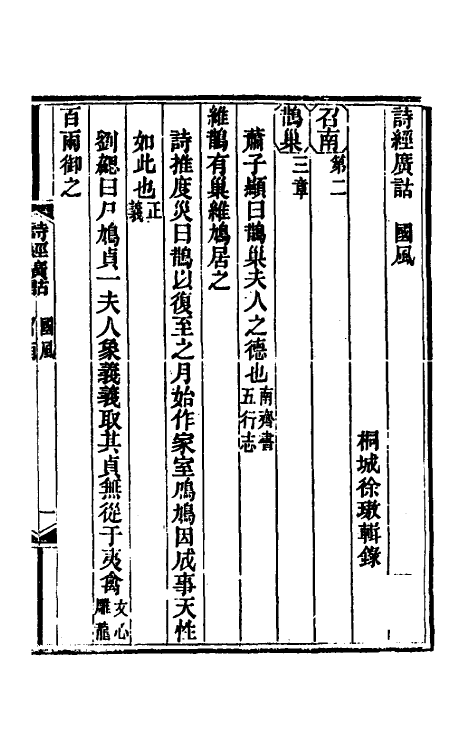 詩經廣詁　國風
桐城徐璈輯錄
召南第二
鵲巢三章
蕭子顯曰鵲巢夫人之德也南齊書五行志
維鵲有巢維鳩居之
詩推度災曰鵲以復至之月始作家室鳲鳩因成事天性
如此也正義
劉勰曰尸鳩貞一夫人象義義取其貞無從于夷禽文心雕龍
百兩御之
詩經廣詁　國風